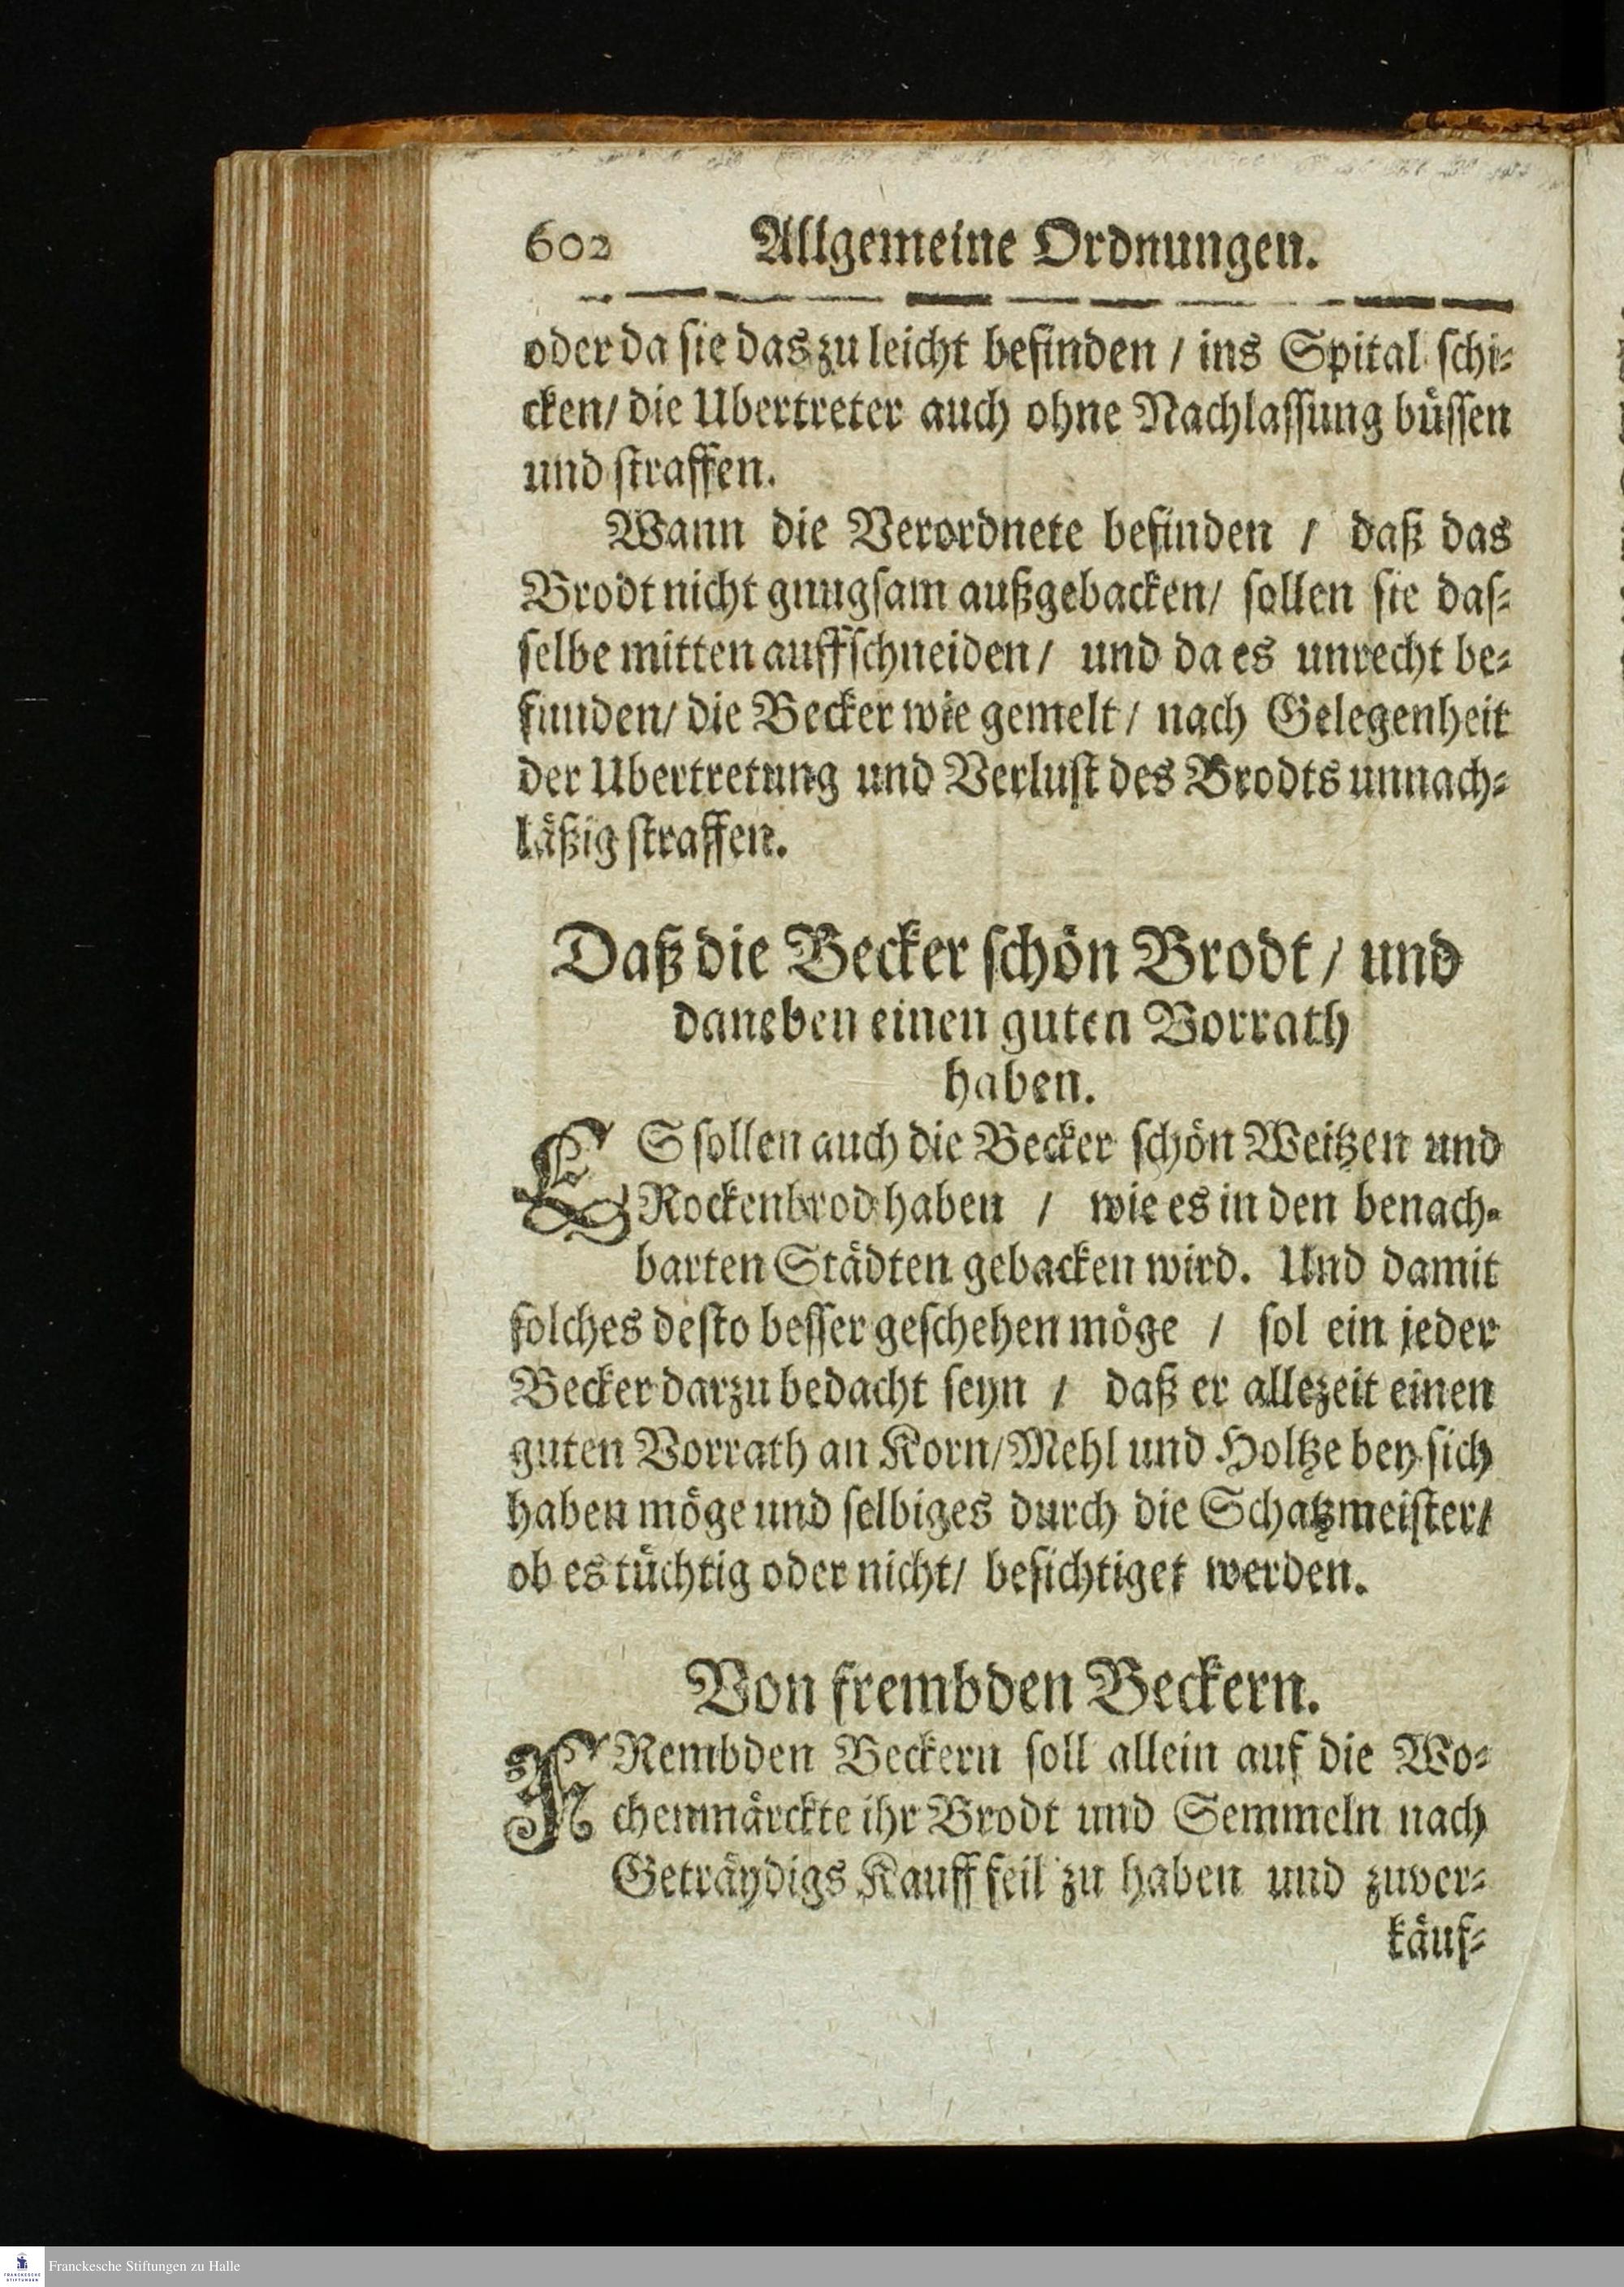 602 Allgemeine Ordnungen.
oder da sie das zu leicht befinden / ins Spital schi-
cken/ die Ubertreter auch ohne Nachlassung büssen
und straffen.
Wann die Verordnete befinden / daß das
Brodt nicht gnugsam außgebacken/ sollen sie das-
selbe mitten auffschneiden/ und da es unrecht be-
funden/ die Becker wie gemelt/ nach Gelegenheit
der Ubertretung und Verlust des Brodts unnach-
läßig straffen.
Daß die Becker schön Brodt / und
daneben einen guten Vorrath
haben.
ES sollen auch die Becker schön Weitzen und
Rockenbrod haben / wie es in den benach-
barten Städten gebacken wird. Und damit
solches desto besser geschehen möge / sol ein jeder
Becker darzu bedacht seyn / daß er allezeit einen
guten Vorrath an Korn/Mehl und Holtze bey sich
haben möge und selbiges durch die Schatzmeister/
ob es tüchtig oder nicht/ besichtiget werden.
Von frembden Beckern.
FRembden Beckern soll allein auf die Wo-
chenmärckte ihr Brodt und Semmeln nach
Geträydigs Kauff feil zu haben und zuver-
käuf-
Franckesche Stiftungen zu Halle